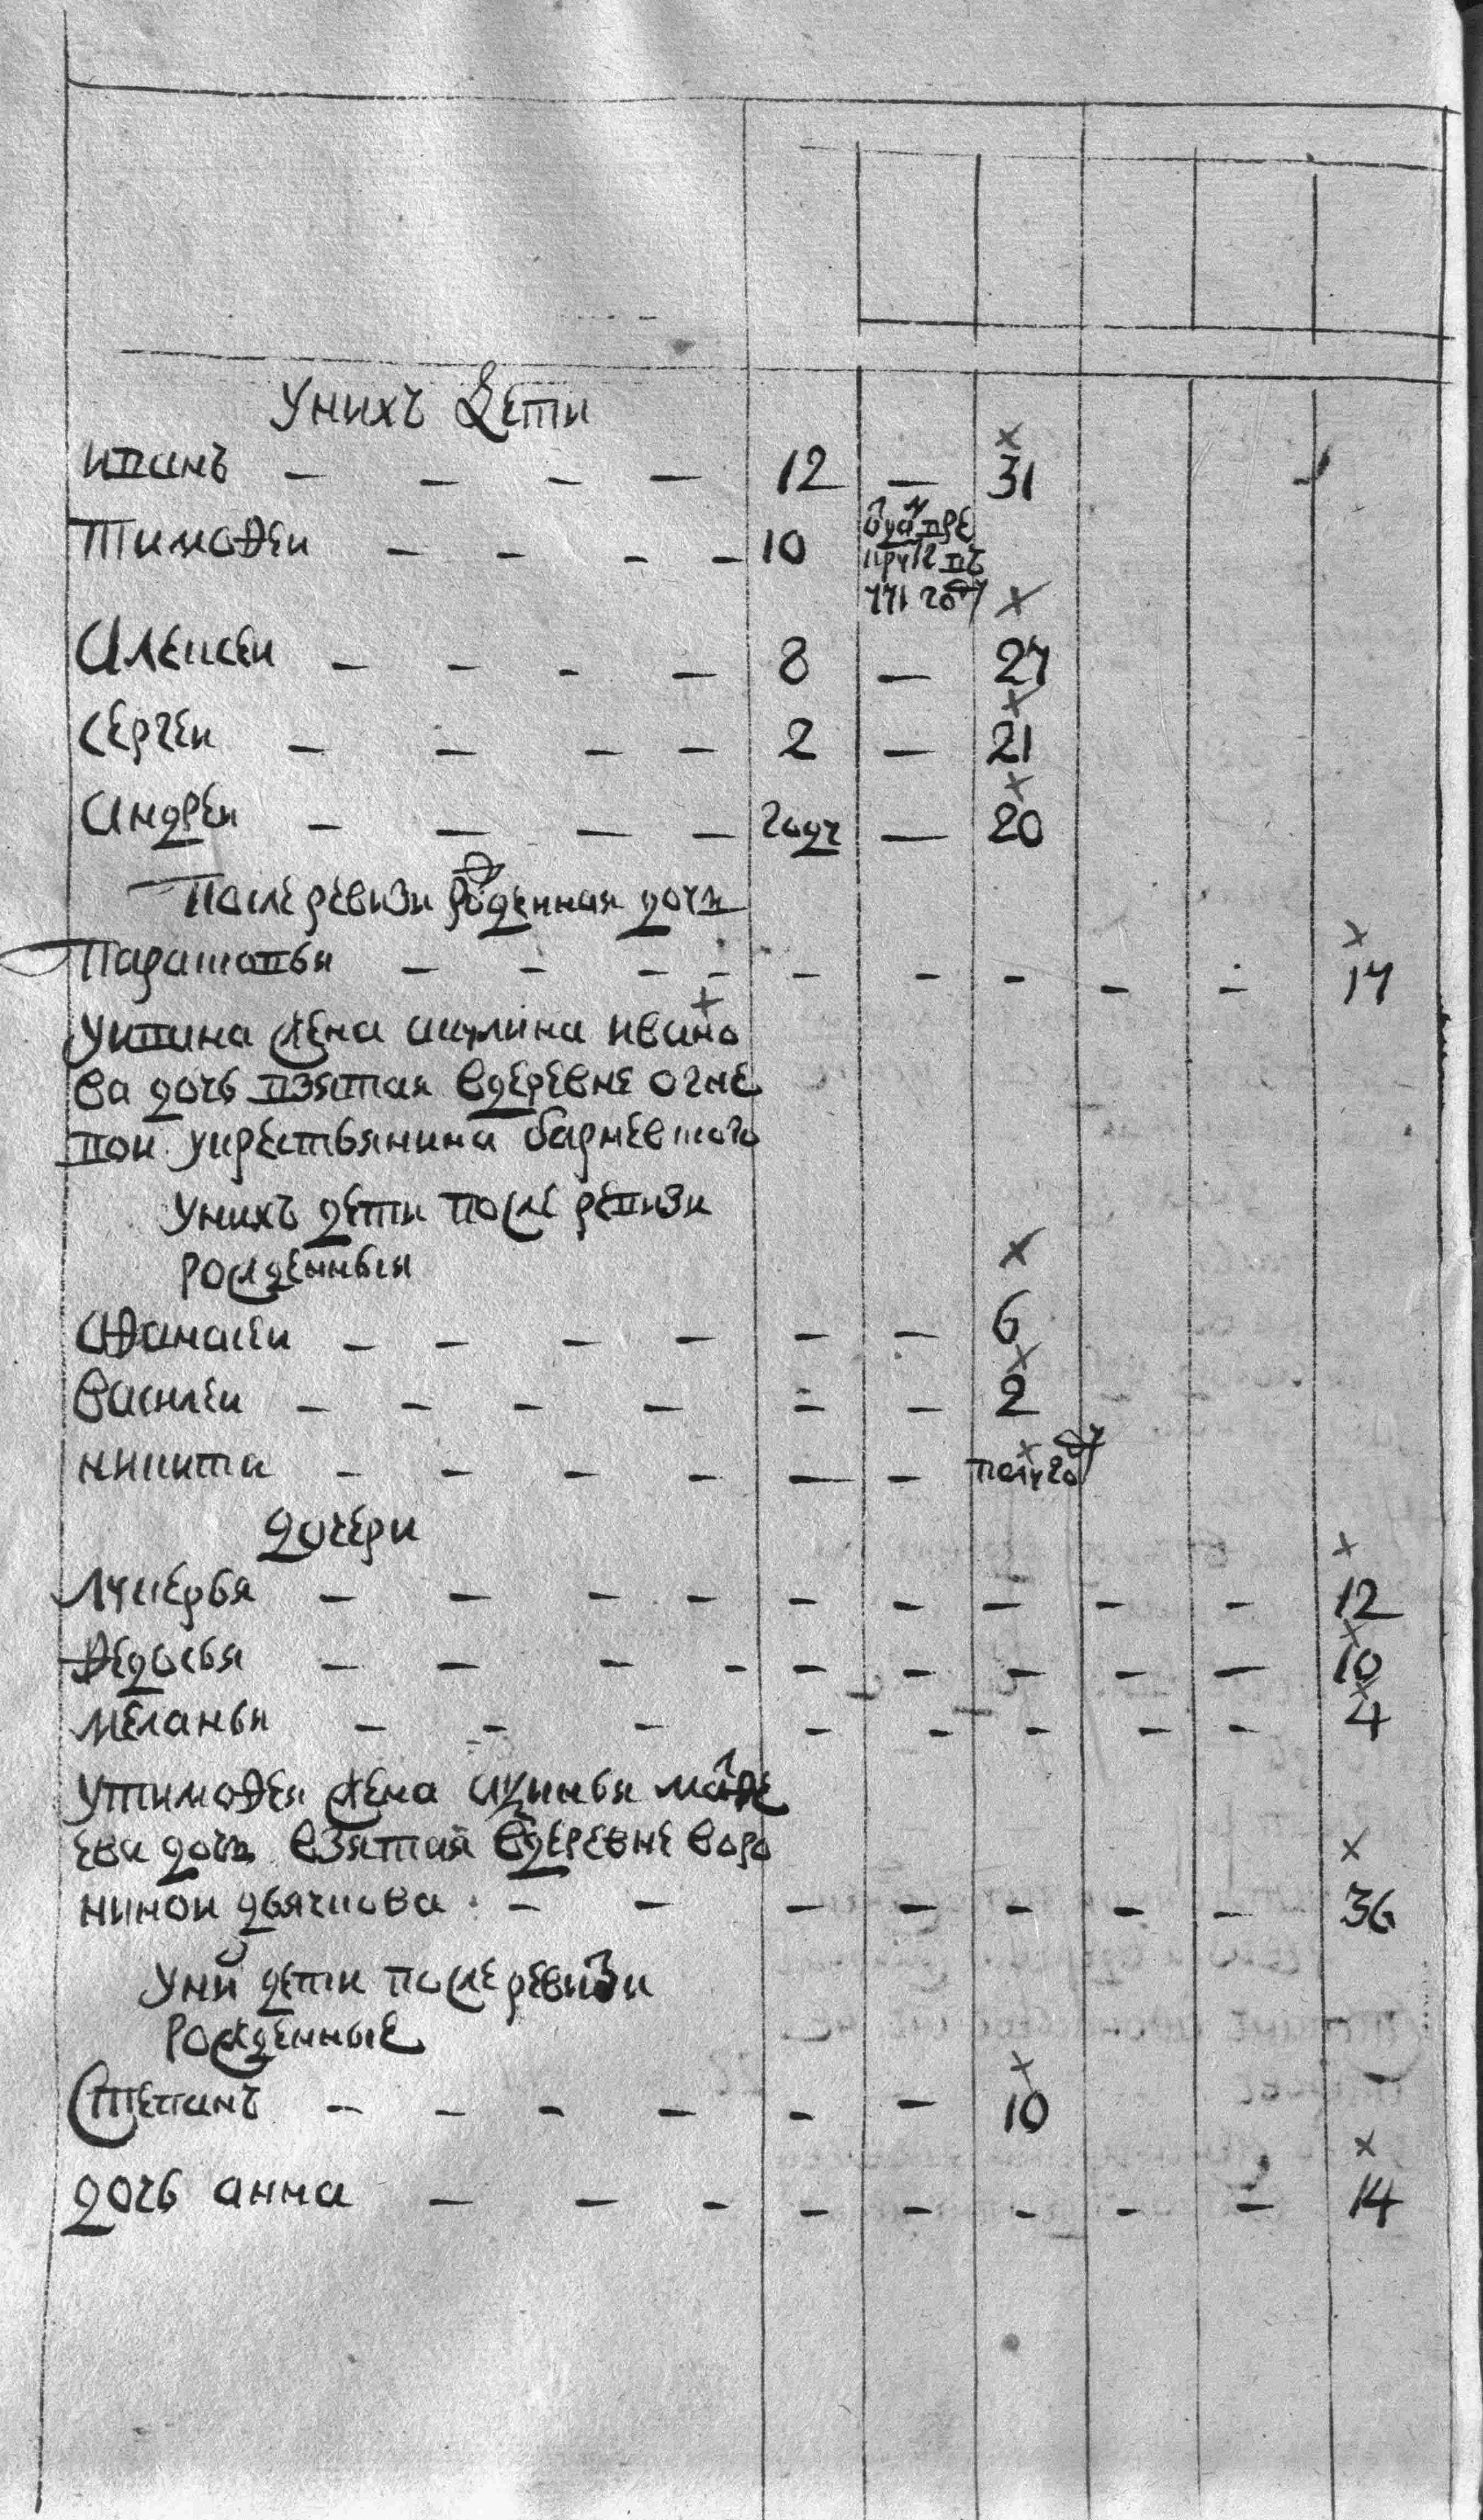 унихъ дети
иванъ — — — — 12 — 31
тимофеи — — — — 10 отдан в ре
круты въ
771 году
алексеи — — — — 8 — 27
сергеи — — — — 2 — 21
андреи — — — — годъ — 20
после ревизи рожденная дочь
парасковья — — — — — — — — — 17
уивана жена акулина ивано
ва дочь взятая вдеревне огне
вои укрестьянина барневскаго
унихъ дети после ревизи
рожденныя
афанасеи — — — — — — 6
василеи — — — — — — 2
никита — — — — — — полугоду
дочери
лукерья — — — — — — — — — 12
федосья — — — — — — — — — 10
меланья — — — — — — — — 4
утимофея жена аксинья матфе
ева дочь взятая вдеревне воро
нинои дьячкова — — — — — — — 36
уних дети после ревизи
рожденные
степанъ — — — — — — 10
дочь анна — — — — — — — — 14